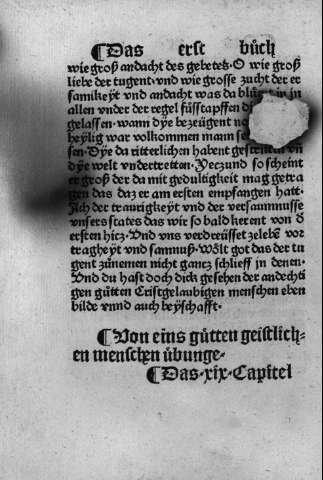 ¶Das erst bůch
wie groß andacht des gebetes. O wie groß
liebe der tugent. vnd wie grosse zucht der er
samikeyt vnd andacht was da blůet in in
allen vnder der regel fůsstapffen
gelassen. wann dye bezeügent
heylig war volkommen mann
sen. Dye da ritterlichen habent gestritten vn
dye welt vndertretten. Yeczund so scheint
er groß der da mit gedultigkeit mag getra
gen das daz er am ersten empfangen hatt.
Ach der traurigkeyt vnd der versaumnusse
vnsers states das wir so bald kerent von d
ersten hicz. Vnd vns verdreüsset zeleben vor
tragheyt vnd sammuß. Wölt got das der tu
gent zůnemen nicht gancz schlieff in denen.
Vnd du hast doch dick gesehen der andechti
gen gůtten Cristgelaubigen menschen eben
bilde vnnd auch beyschafft.
¶Von eins gůtten geistlich-
en menschen übunge.
¶Das .xix. Capitel